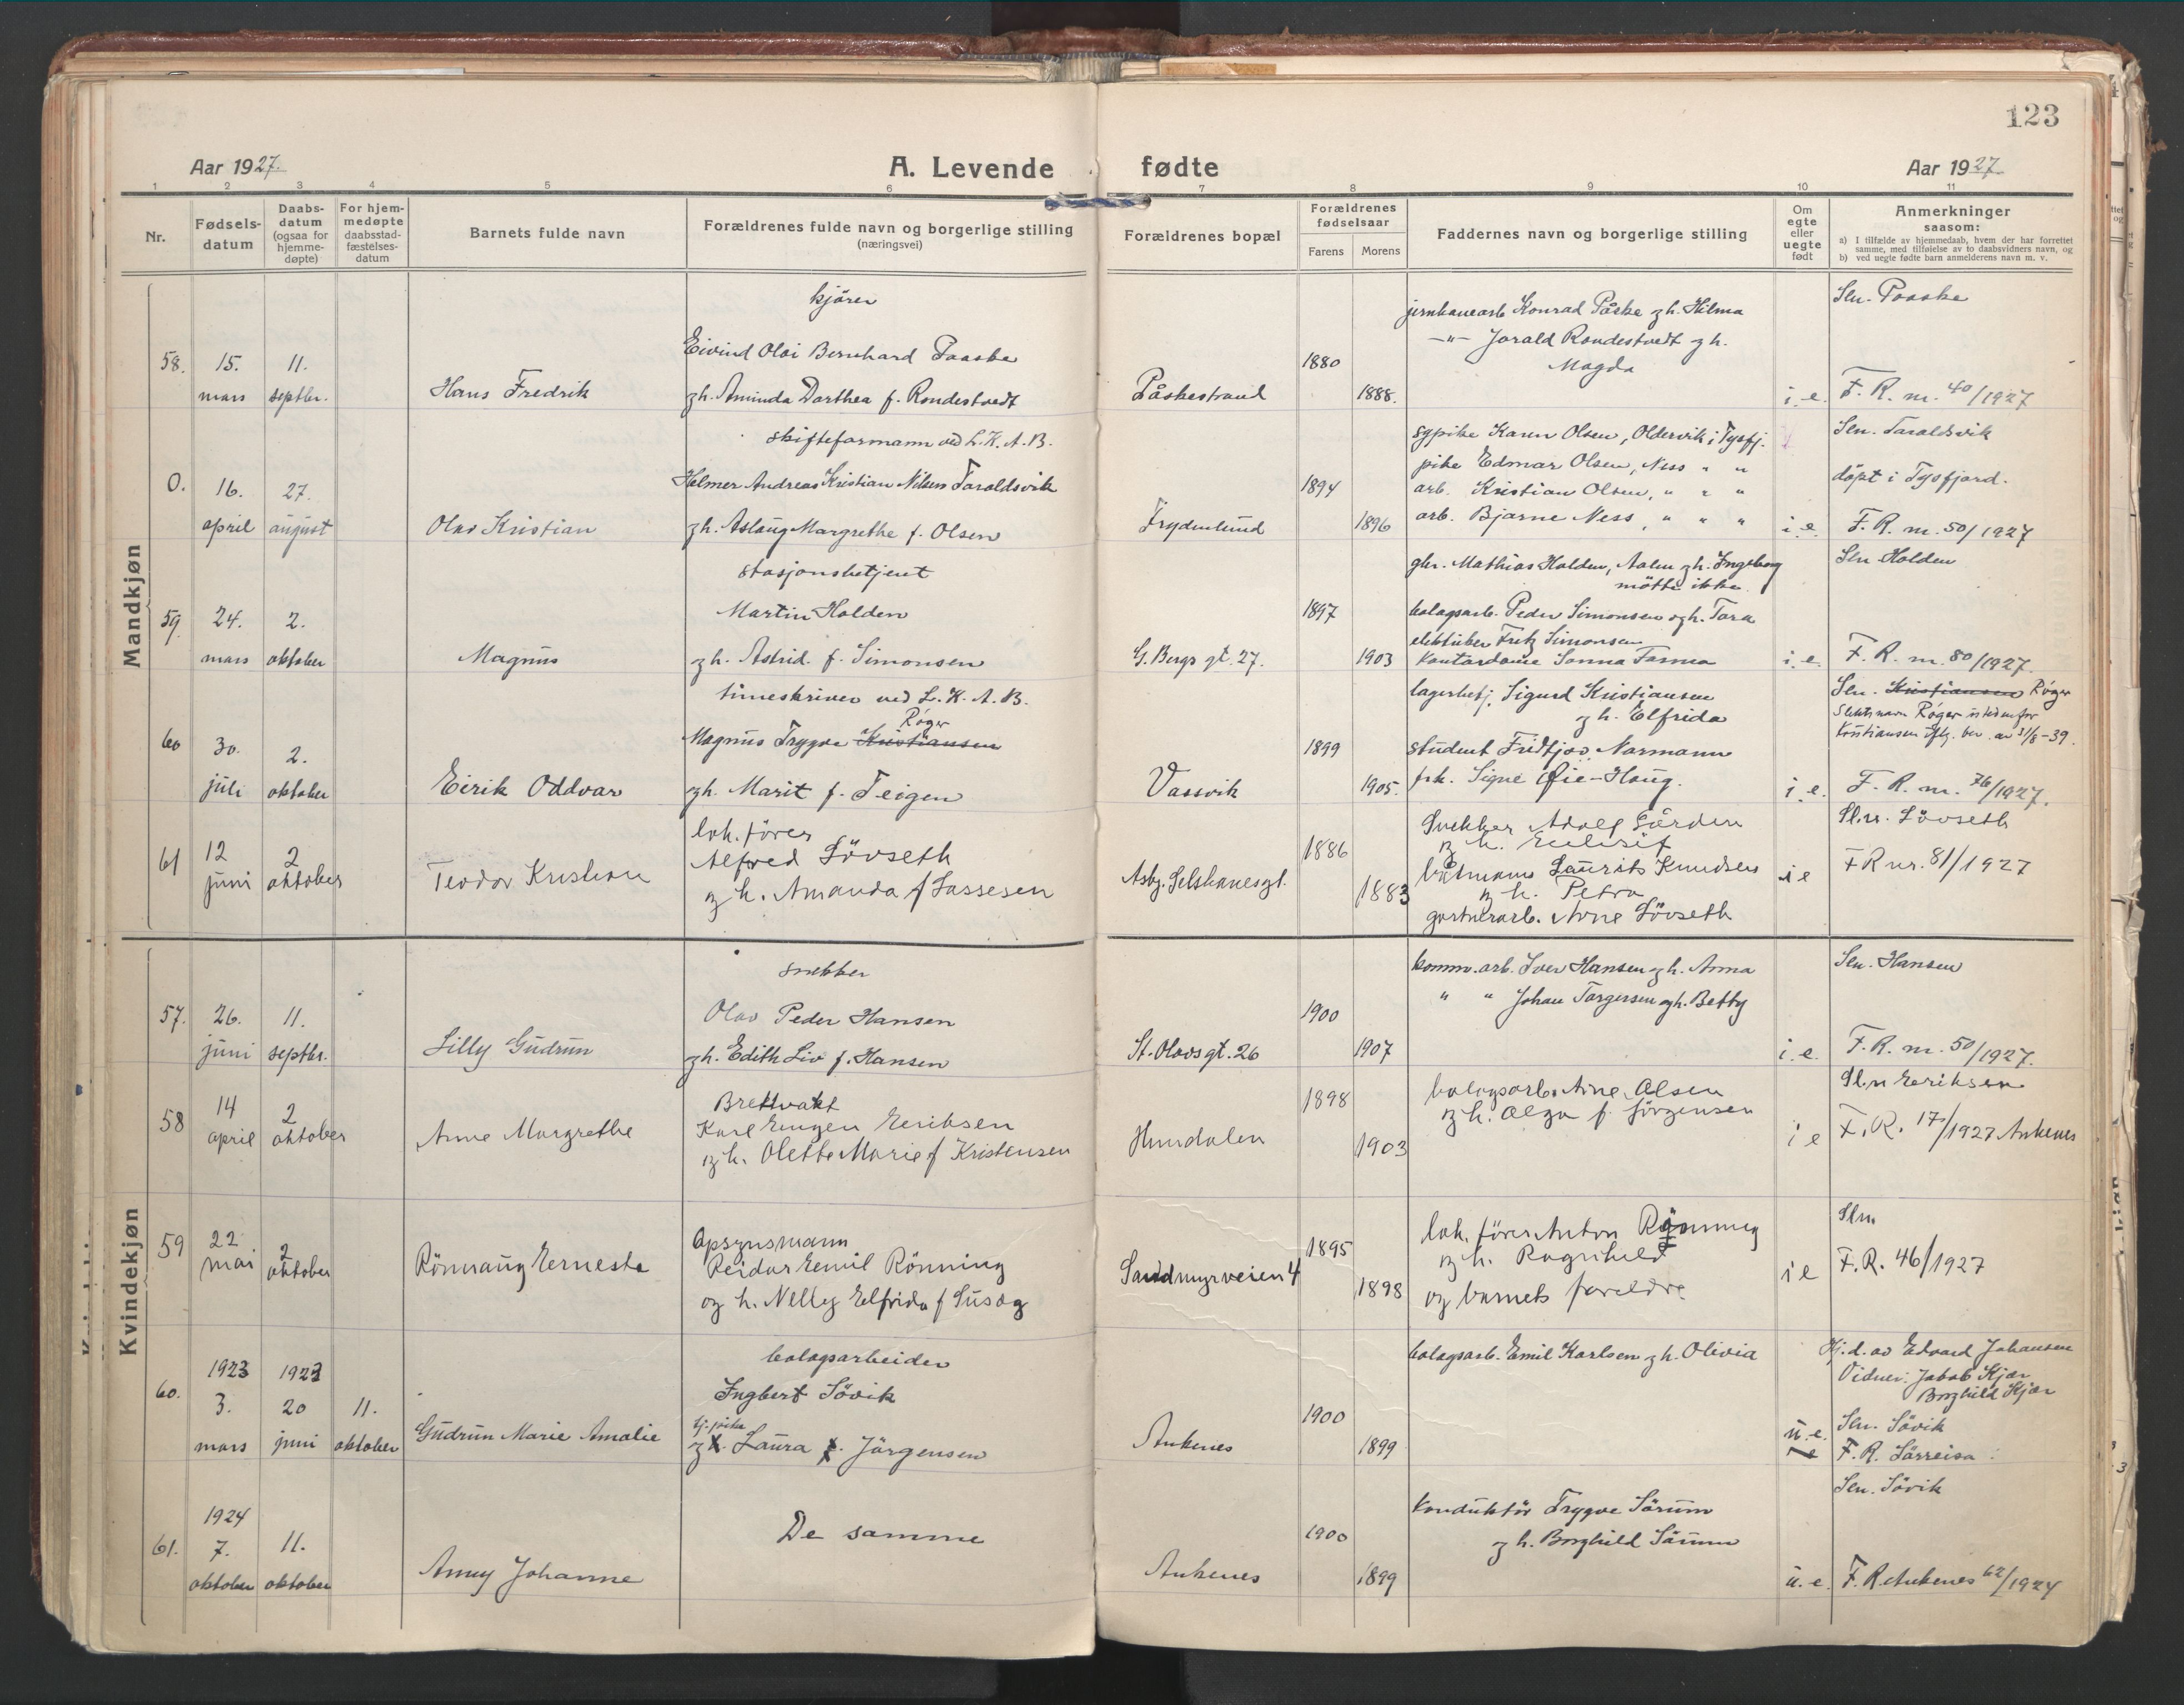 123
Aar 1927.
A. Levende fødte
Aar 1927.
1 2 3 4 5 6 7 8 9 10 11
Nr.
Fødsels-
datum
Daabs-
datum
(ogsaa for
hjemme-
døpte)
For hjem-
medøpte
daabsstad-
fæstelses-
datum
Barnets fulde navn
Forældrenes fulde navn og borgerlige stilling
(næringsvei)
Forældrenes bopæl
Forældrenes
fødselsaar
Farens
Morens
Faddernes navn og borgerlige stilling
Om
egte
eller
uegte
født
Anmerkninger
saasom:
a) I tilfælde av hjemmedaab, hvem der har forrettet
samme, med tilføielse av to daabsvidners navn, og
b) ved uegte fødte barn anmelderens navn m. v.
Mandkjøn
58.
15.
mars
11.
septbr.
Hans Fredrik
kjörer
Eivind Olai Bernhard Paaske
og h. Aminda Dorthea f. Rondestvedt
Påskestrand
1880
1888.
jernbanearb. Konrad Påske og h. Hilma
-"- Jarald Rondestvedt og h.
Magda
i. e.
Sln. Paaske
F. R. nr. 40/1927
0.
16.
april
27.
august
Olav Kristian
skifteformann ved L.K.A.B.
Helmer Andreas Kristian Nilsen Taraldsvik
og h. Aslaug Margrethe f. Olsen
Frydenlund
1894
1896
sypike Karen Olsen, Oldervik i Tysfj.
pike Edmar Olsen, Ness " "
arb. Kristian Olsen, " " "
arb. Bjarne Ness, " " "
i. e.
Sln. Taraldsvik
döpt i Tysfjord.
F. R. nr. 50/1927
59.
24.
mars
2.
oktober
Magnus
stasjonsbetjent
Martin Holden
og h. Astrid f. Simonsen
G. Bergs gt. 27.
1897
1903
gbr. Mathias Holden, Aalen og h. Ingeborg
mötte ikke
bolagsarb. Peder Simonsen og h. Tora
elektriker Fritz Simonsen
Kontordame Sanna
i. e.
Sln Holden
F. R. nr. 80/1927.
60
30.
juli
2.
oktober
Eirik Oddvar
timeskriver ved L.K.A.B.
Röger
Magnus Trygve Kristiansen
og h. Marit f. Teigen
Vassvik
1899
1905.
lagerbetj. Sigurd Kristiansen
og h. Elfrida
student Fridtjov Normann
frk. Signe Øie-Haug.
i. e.
Sln. Kristiansen Röger
Slektsnavn Röger istedenfor
Kristiansen iflg. bev. av 31/8-39.
F. R. nr. 76/1927.
61
12
juni
2
oktober
Teodor Kristian
lok. förer
Alfred Lövseth
og h. Amanda f Lassesen
Asbj. Selsbanesgt.
1886
1883
Snekker Adolf
og h.
båtmann Laurits Knudsen
og h. Petra
gartnerarb. Arne Lövseth
i e
Sln. Lövseth
F R nr. 81/1927
Kvindekjøn
57.
26.
juni
11.
septbr.
Lilly Gudrun
snekker
Olav Peder Hansen
og h. Edith Liv f. Hansen
St. Olavsgt. 26
1900
1907
komm. arb. Iver Hansen og h. Anna
" " Johan Torgersen og h. Betty
i. e.
Sln. Hansen
F. R. nr. 50/1927.
58
14
april
2
oktober
Anne Margrethe
Brettvakt
Karl Eugen Eriksen
og h. Olette Marie f Kristensen
Hundalen
1898
1903
bolagsarb. Arne Olsen
og h. Olga f. Jörgensen
i e
Sln Eriksen
F. R. 17/1927 Ankenes
59
22
mai
2
oktober
Rönnaug Erneste
Opsynsmann
Reidar Emil Rönning
og h. Nelly Elfrida f Susæg
Sandmyrveien 4
1895
1898
lok. förer Anton Rönning
og h. Ragnhild
og barnets foreldre
i e
Sln.
F. R. 46/1927
60.
1923
3.
mars
1923
20
juni
11.
oktober
Gudrun Marie Amalie
bolagsarbeider
Ingbert Sövik
tj. pike
og h. Laura f. Jörgensen
Ankenes
1900
1899
bolagsarb. Emil Karlsen og h. Olivia
u. e.
Hj. d. av Edvard Johansen
Vidner: Jakob Kjær
Borghild Kjær
Sln. Sövik
F. R. Sörreisa
61.
1924
7.
oktober
11.
oktober
Anny Johanne
De samme
Ankenes
1900
1899
Konduktör Trygve Sörum
og h. Borghild Sörum
u. e.
Sln. Sövik
F. R. Ankenes 62/1924